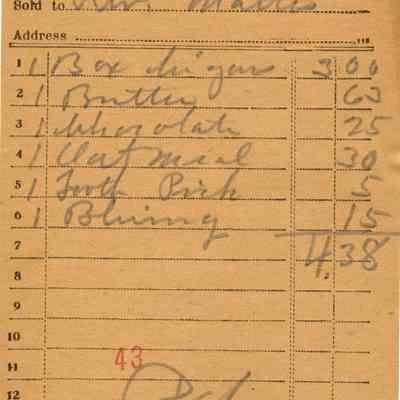 Sold to
Address
1 1 Box Cigars 3 00
2 1 Butter 63
3 1 Chocolate 25
4 1 Oat meal 30
5 1 Tooth Pick 5
6 1 Bluing 15
7 4.38
8
9
10
11 43
12 Pd